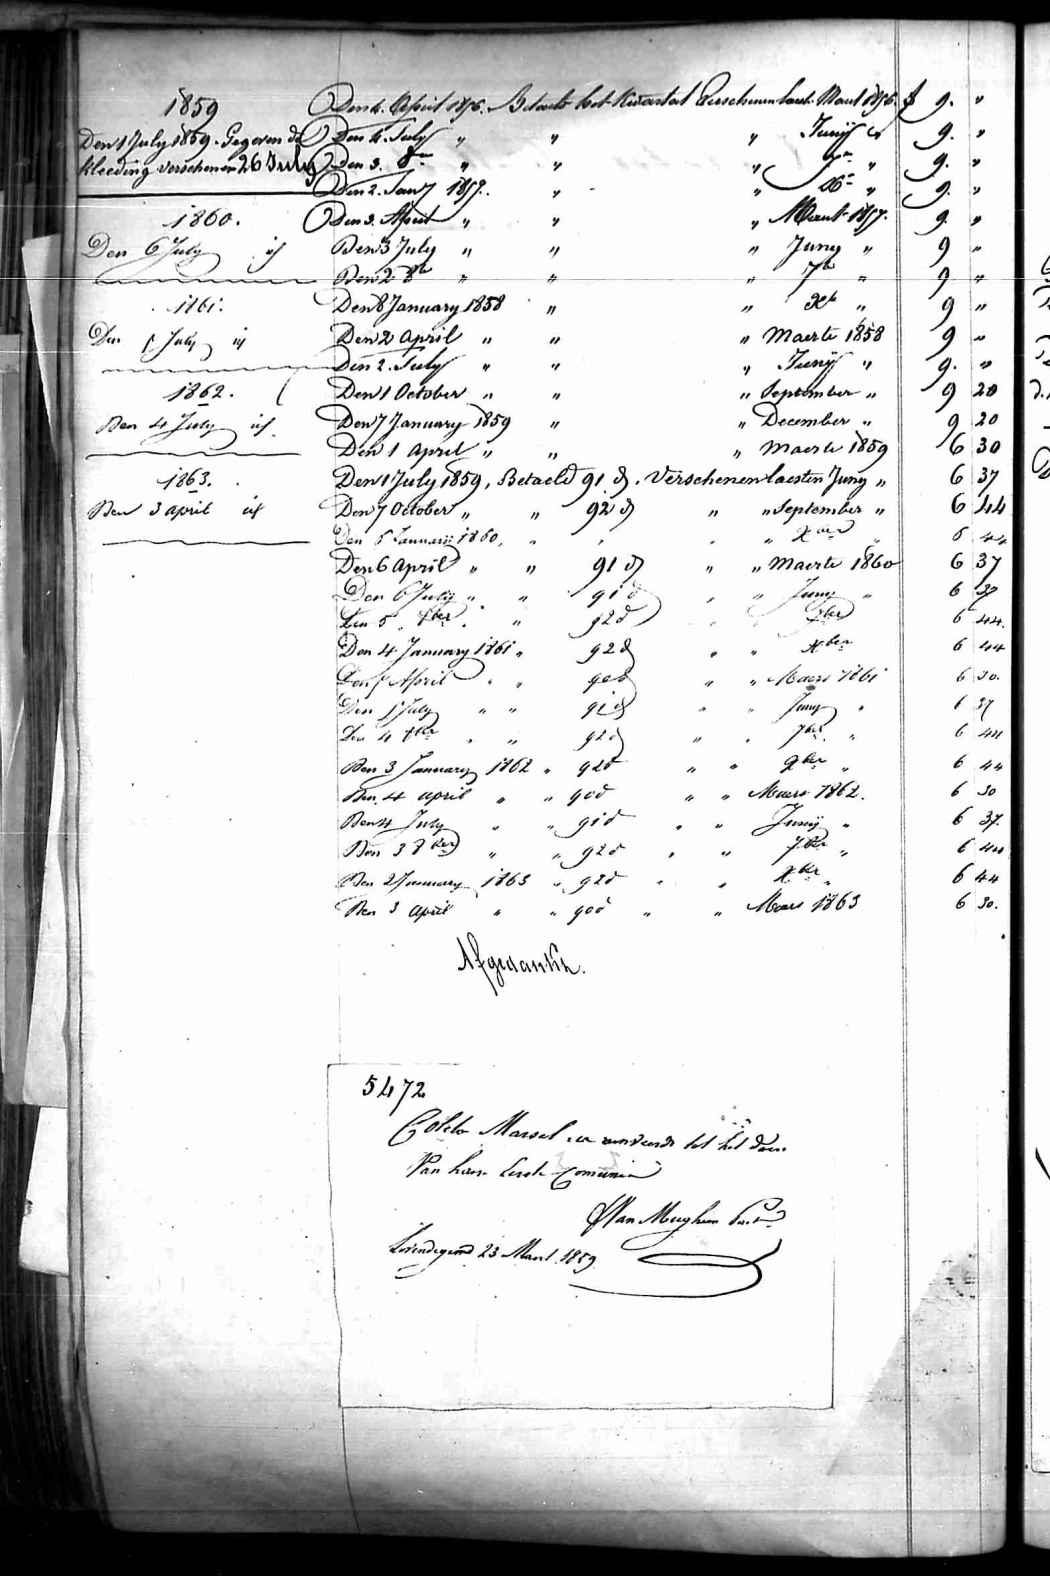 1859
Den 1 July 1859. Gegeven de
kleeding verschenen 26 July
1860.
Den 6 July id
1861.
Den 5 July id
1862.
Den 4 July id.
1863.
Den 3 april id
Den 4. April 1856. Betaelt het Kwartael Verschenen laest. Maert 1856. f 9. "
Den 4. July " " " Junij " 9. "
Den 3. 8er " " " 7er " 9. "
Den 2. Jany 1857. " " Xr " 9. "
Den 3. April " " " Maert 1857. 9. "
Den 3 July " " " Juny " 9 "
Den 2 8br " " " 7br " 9 "
Den 8 January 1858 " " Xbr " 9 "
Den 2 April " " " Maerte 1858 9 "
Den 2. July " " " Junij " 9. "
Den 1 October " " " September " 9 20
Den 7 January 1859 " " December " 9 20
Den 1 April " " " Maerte 1859 6 30
Den 1 July 1859, Betaeld 91 d. Verschenen laesten Juny " 6 37
Den 7 October " " 92 d " " September " 6 44
Den 6 Januarij 1860, " " " " Xber " 6 44
Den 6 April " " 91 d " " Maerte 1860 6 37
Den 6 July " " 91 d " " Juny " 6 37
Den 5 8ber " " 92 d " " 7ber 6 44.
Den 4 January 1861 " 92 d " " Xber 6 44
Den 5 April " " 90 d " " Maers 1861 6 30.
Den 5 July " " 91 d " " Juny " 6 37
Den 4 8ber " " 92 d " " 7ber " 6 44
Den 3 January 1862 " 92 d " " Xber " 6 44
Den 4 april " " 90 d " " Maers 1862. 6 30
Den 4 July " " 91 d " " Junij " 6 37.
Den 3 8ber " " 92 d " " 7ber " 6 44
Den 2 January 1863 " 92 d " " Xber " 6 44
Den 3 april " " 90 d " " Maers 1863 6 30.
Afgedankt.
5472
Coleta Marsel is aenveerd tot het doen
Van haer Eerste Comunie
Van Meighem Past.
Lovendegem 23 Maert 1859